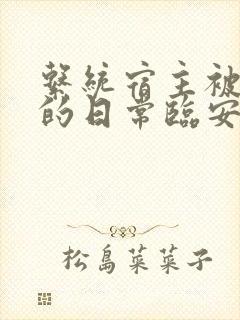 繫統宿主被
的日常臨安
松島菜菜子